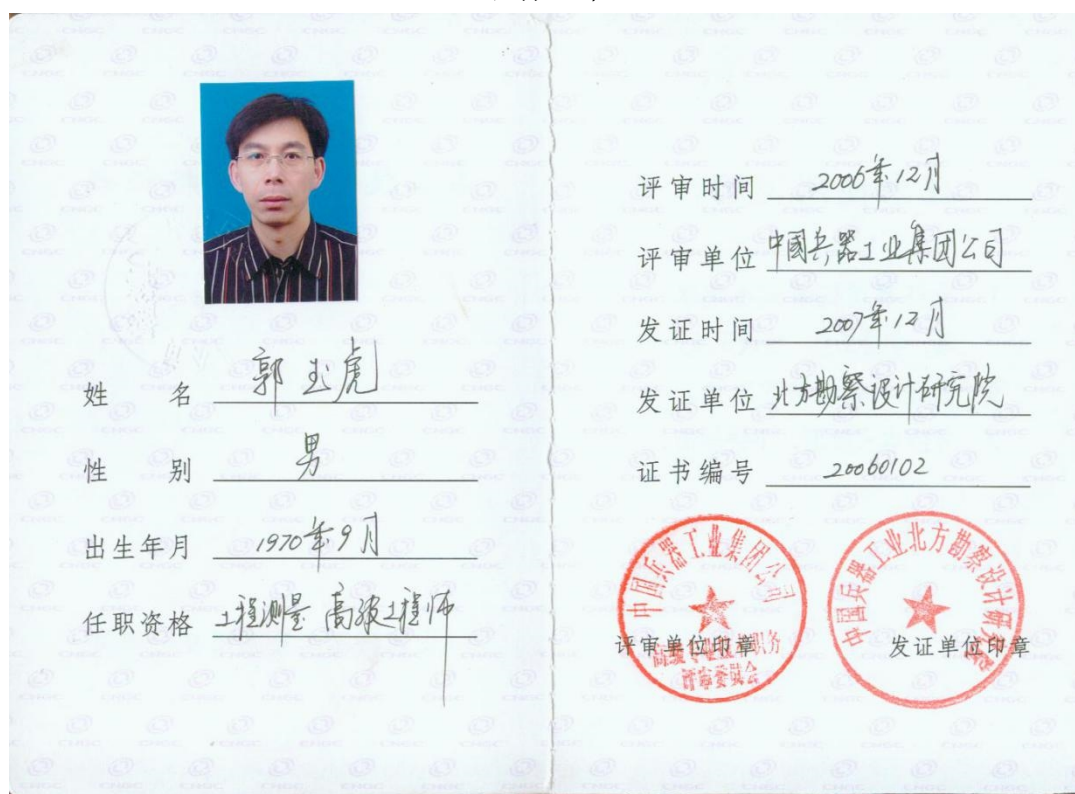 姓 名 郭玉虎
性 别 男
出生年月 1970年9月
任职资格 工程测量 高级工程师
评审时间 2006年12月
评审单位 中国兵器工业集团公司
发证时间 2007年12月
发证单位 北方勘察设计研究院
证书编号 20060102
中国兵器工业集团公司
评审单位印章
评审委员会
中国兵器工业北方勘察设计研究院
发证单位印章
CNGC